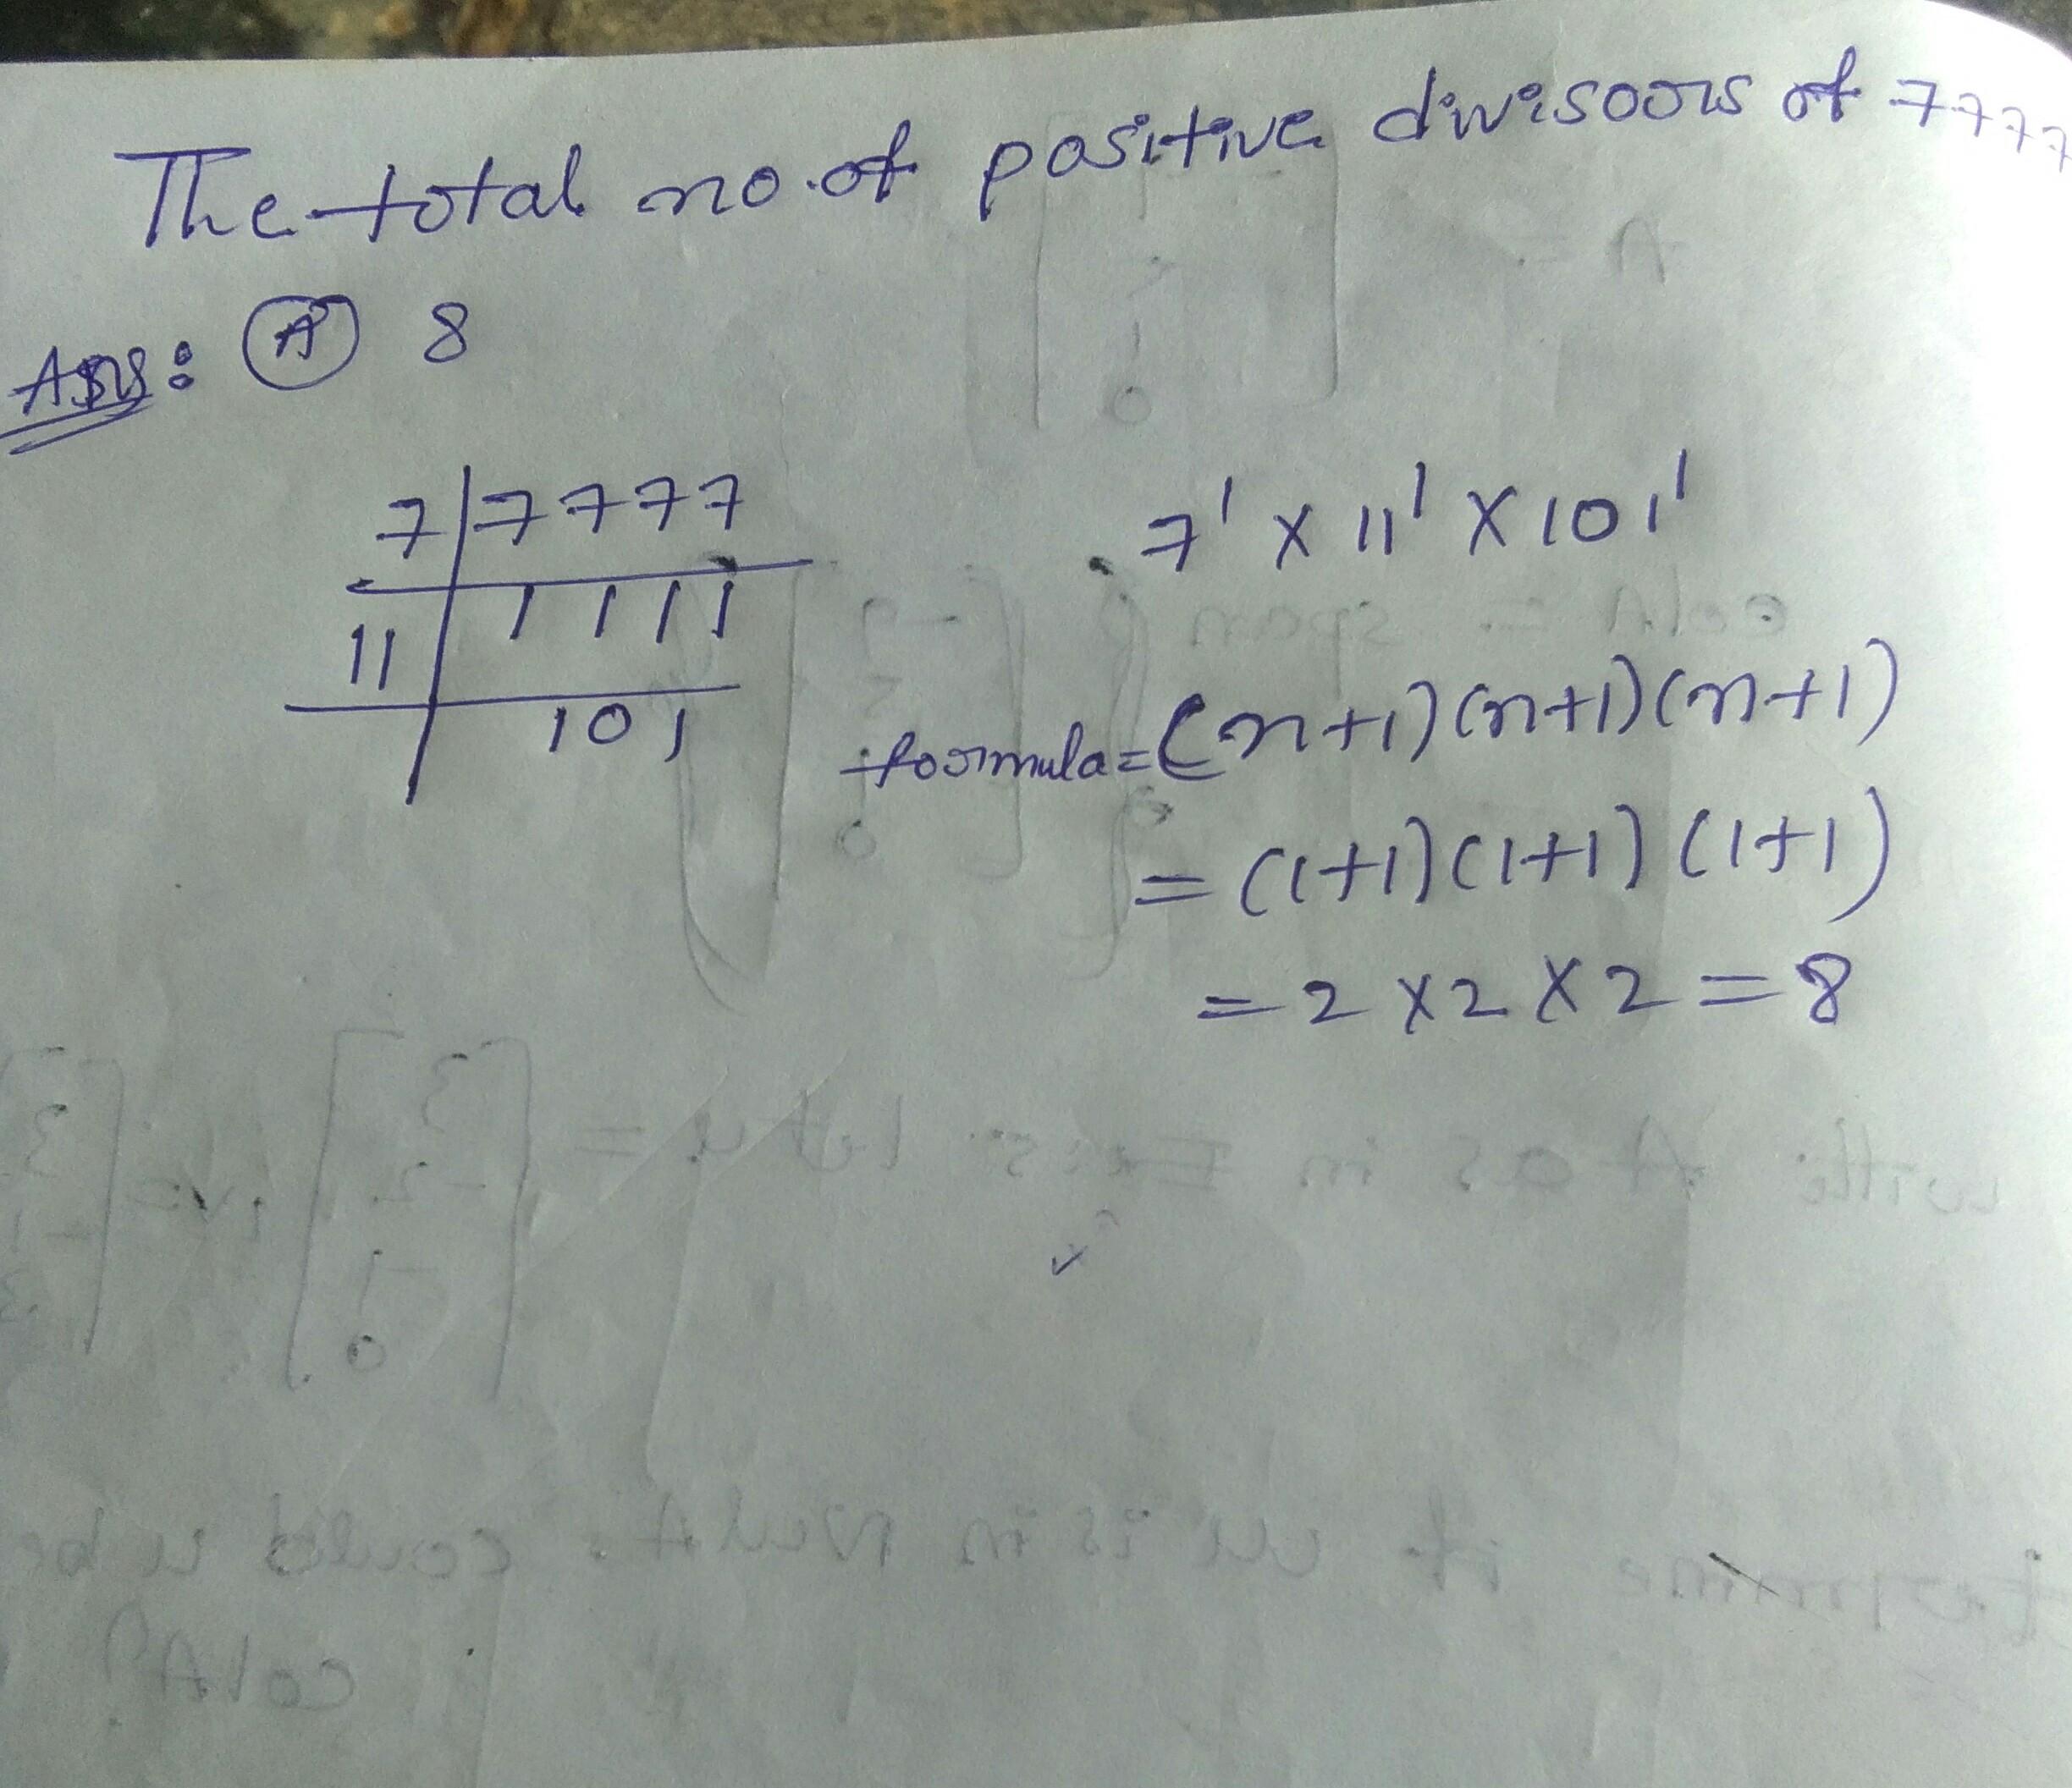 The total no. of positive divisors of 7777
Ans: A 8
7 7777
11 1111
101
7¹ x 11¹ x 101¹
formula = (n+1) (n+1) (n+1)
= (1+1) (1+1) (1+1)
= 2 x 2 x 2 = 8